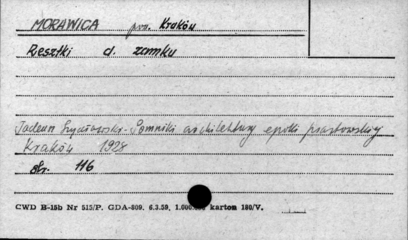 MORAWICA pow. Kraków
Resztki d. zamku
Tadeusz Szydłowski - Pomniki architektury epoki piastowskiej
Kraków 1928
str. 116
CWD B-15b Nr 513/P. GDA-809. 6.3.59. karton 180/V.